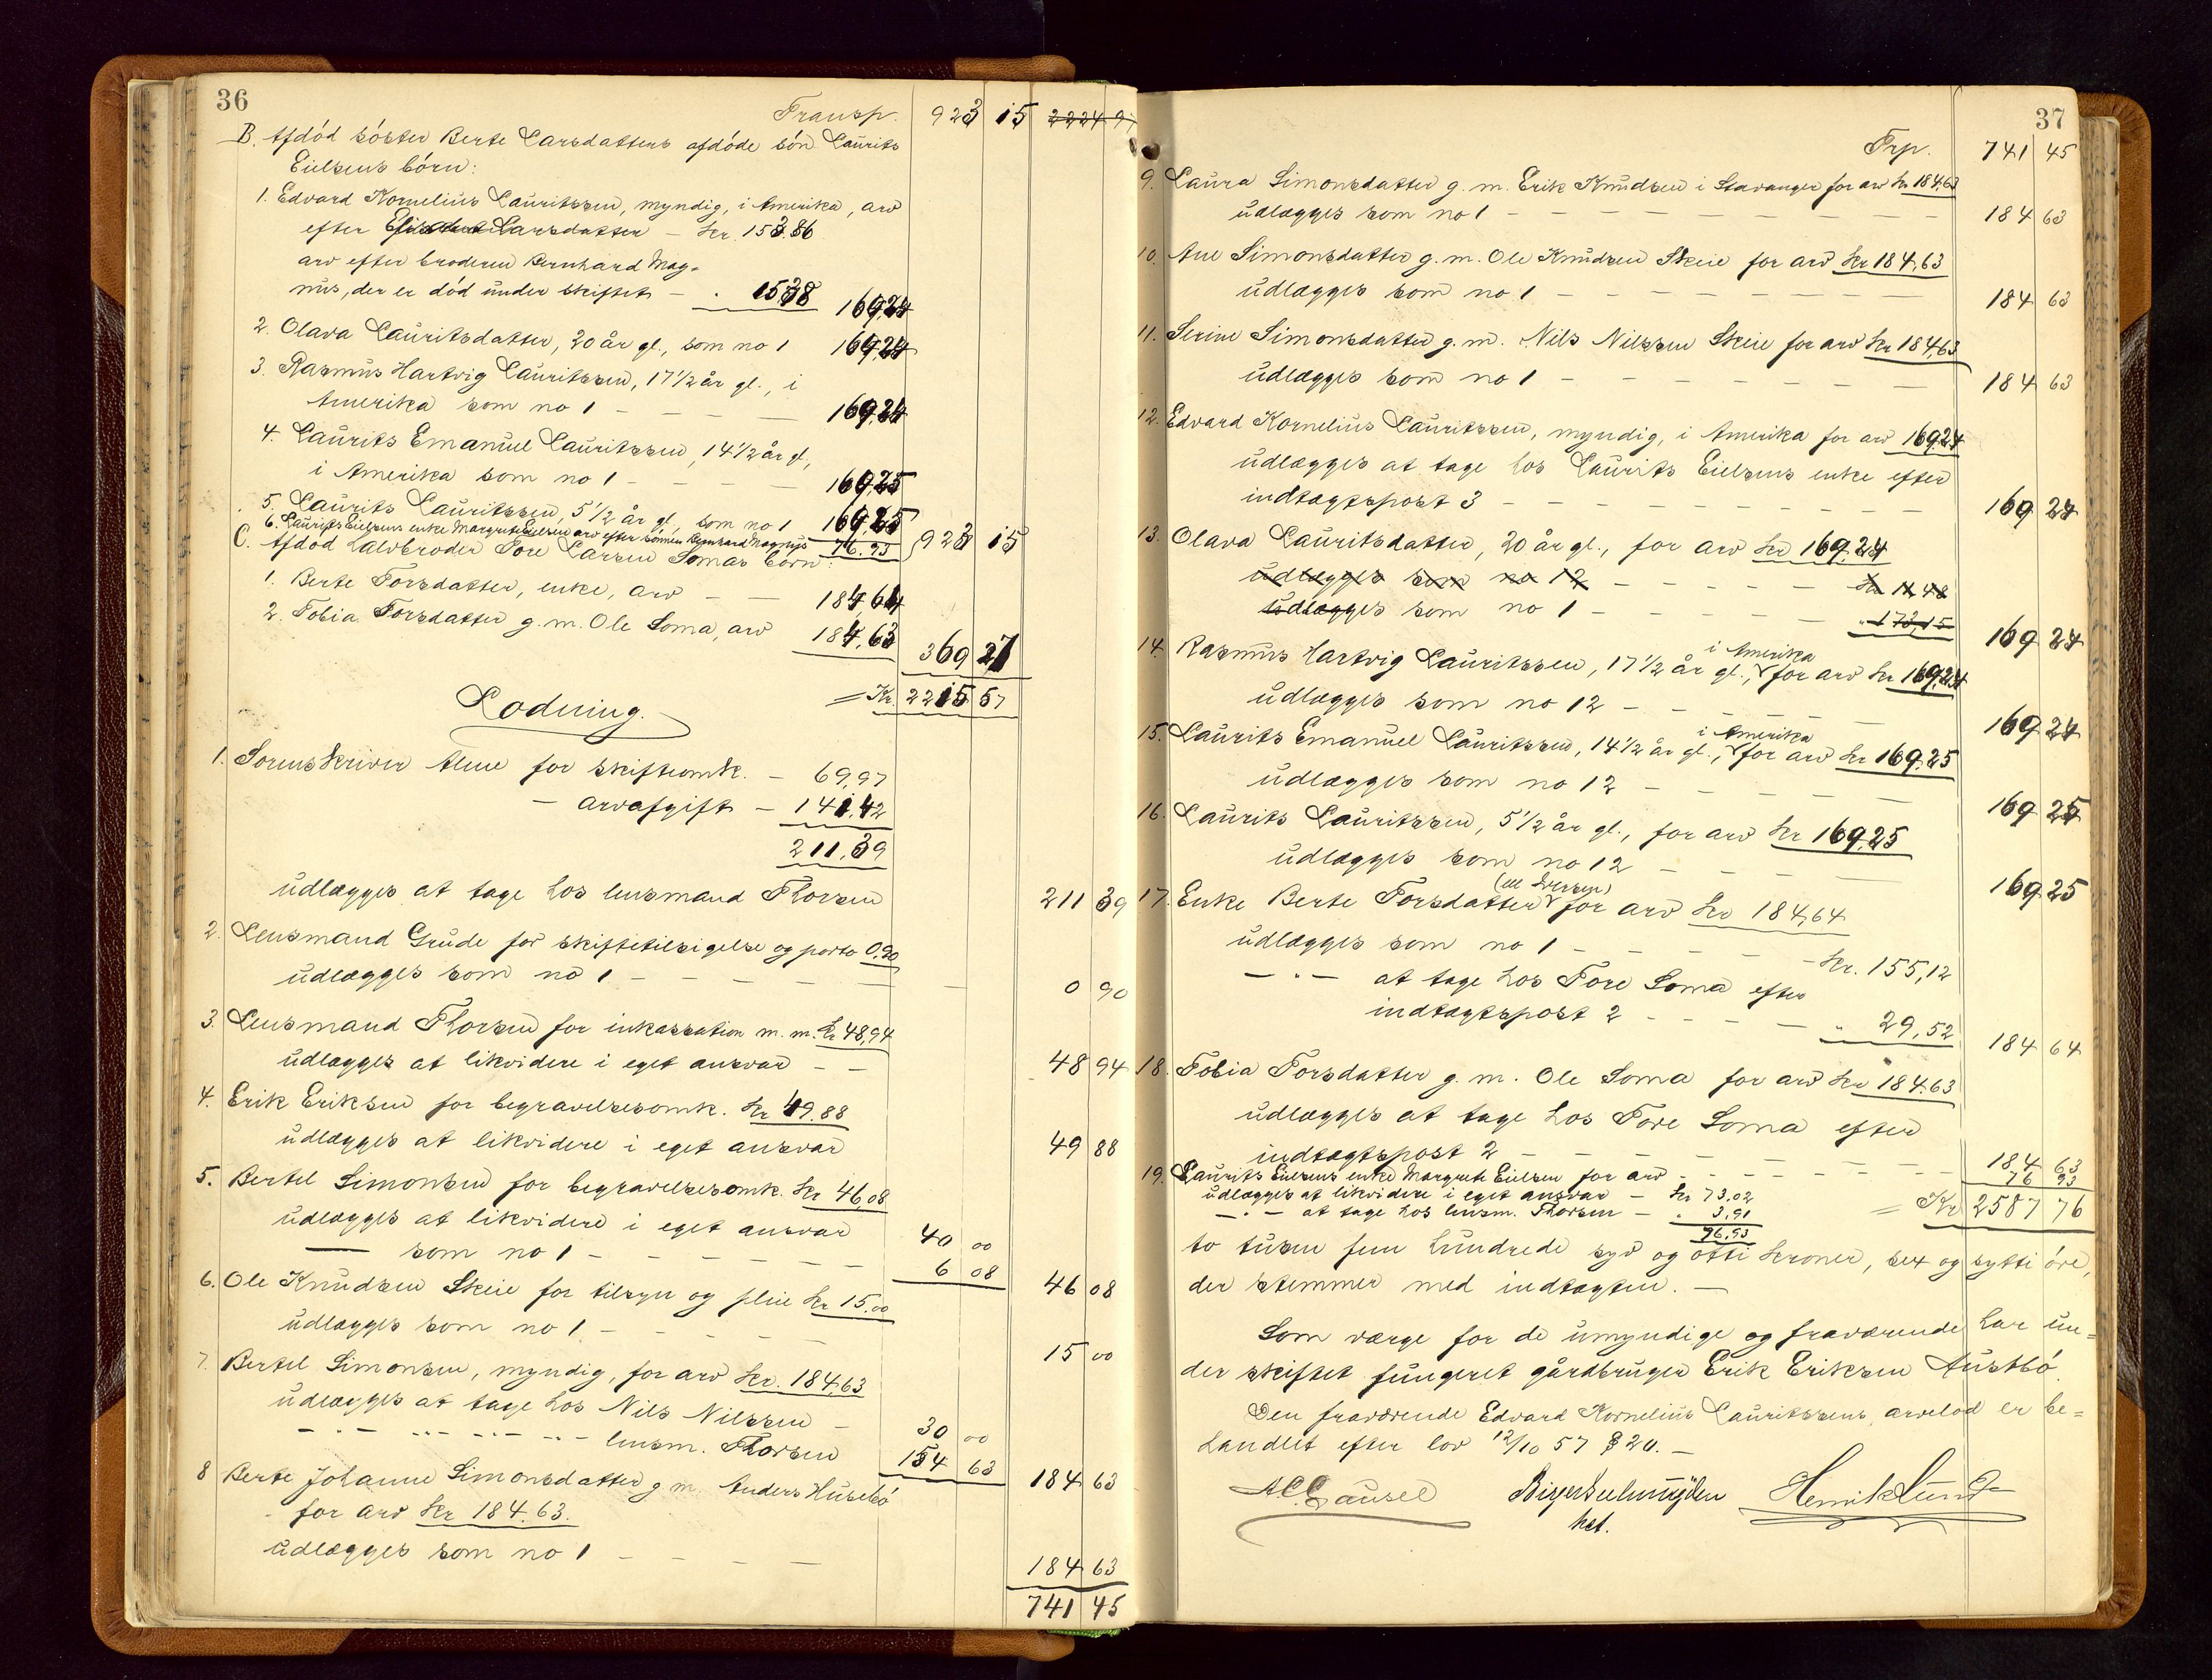 36
Transp. 923 15 2224 97
B. Afdöd söster Berte Larsdatters afdöde sön Laurits
Eielsens börn:
1. Edvard Kornelius Lauritssen, myndig, i Amerika, arv
efter Larsdatter - Kr. 153.86
arv efter broderen Bernhard Mag-
nus, der er död under skiftet - " 15.38 169,24
2. Olava Lauritsdatter, 20 år gl., som no 1 169,24
3. Rasmus Hartvig Lauritssen, 17 1/2 år gl., i
Amerika som no 1 - - - 169,24
4. Laurits Emanuel Lauritssen, 14 1/2 år gl.,
i Amerika som no 1 - - - 169,25
5. Laurits Lauritssen, 5 1/2 år gl., som no 1 169,25
6. Laurits Eielsens enke Margrete Eielsen arv efter sönnen Bernhard Magnus 76.93 923 15
C. Afdöd halvbroder Tore Larsen Somas börn:
1. Berte Torsdatter, enke, arv - - 184,64
2. Tobia Torsdatter g. m. Ole Soma, arv 184,63 369 27
= Kr. 2215 57
Lodning.
1. Sorenskriver Aune for skifteomk. - 69,97
- arvafgift - 141,42
211,39
udlægges at tage hos lensmand Thorsen 211 39
2. Lensmand Grude for skiftetilsigelse og porto 0,90
udlægges som no 1 - - - - 0 90
3. Lensmand Thorsen for inkassation m. m. Kr 48,94
udlægges at likvidere i eget ansvar - - 48 94
4. Erik Eriksen for begravelsesomk. Kr 49.88
udlægges at likvidere i eget ansvar 49 88
5. Bertel Simonsen for begravelsesomk. Kr 46,08
udlægges at likvidere i eget ansvar 40 00
— som no 1 - - - - 6 08 46 08
6. Ole Knudsen Skeie for tilsyn og pleie Kr 15.00
udlægges som no 1 - - - - 15 00
7. Bertel Simonsen, myndig, for arv Kr. 184.63
udlægges at tage hos Nils Nilssen - 30 00
- " - " - " - " - lensm. Thorsen 154 63 184 63
8 Berte Johanne Simonsdatter g. m. Anders Husebö
for arv Kr 184.63.
udlægges som no 1 - - - - 184 63
741 45
37
Trp. 741 45
9. Laura Simonsdatter g. m. Erik Knudsen i Stavanger for arv Kr 184.63
udlægges som no 1 - - - - - - - 184 63
10. Ane Simonsdatter g. m. Ole Knudsen Skeie for arv Kr 184,63
udlægges som no 1 - - - - - - - 184 63
11. Serine Simonsdatter g. m. Nils Nilssen Skeie for arv Kr 184,63
udlægges som no 1 - - - - - - - 184 63
12. Edvard Kornelius Lauritssen, myndig, i Amerika for arv 169,24
udlægges at tage hos Laurits Eielsens enke efter
indtægtspost 3 - - - - - - - 169 24
13. Olava Lauritsdatter, 20 år gl., for arv Kr 169.24
udlægges som no 12 - - - - Kr 11 48
udlægges som no 1 - - - - " 173,15 169 24
14. Rasmus Hartvig Lauritssen, 17 1/2 år gl., i Amerika for arv Kr 169,24
udlægges som no 12 - - - - 169 24
15. Laurits Emanuel Lauritssen, 14 1/2 år gl., i Amerika for arv Kr 169,25
udlægges som no 12 - - - - 169 25
16. Laurits Lauritssen, 5 1/2 år gl., for arv Kr 169.25
udlægges som no 12 - - - - 169 25
17. Enke Berte Torsdatter for arv Kr 184,64
udlægges som no 1 - - - - Kr. 155,12
- " - at tage hos Tore Soma efter
indtægtspost 2 - - - - " 29,52 184 64
18. Tobia Torsdatter g. m. Ole Soma for arv Kr 184.63
udlægges at tage hos Tore Soma efter
indtægtspost 2 - - - - - - 184 63
19. Laurits Eielsens enke Margrete Eielsen for arv - - - - 76 93
udlægges at likvidere i eget ansvar - Kr 73.02
- " - at tage hos lensm. Thorsen - " 3,91 = Kr 2587 76
76,93
to tusen fem hundrede syv og otti kroner, sex og sytti öre,
der stemmer med indtægten. -
Som værge for de umyndige og fraværende har un-
der skiftet fungeret gårdbruger Erik Eriksen Austbö.
Den fraværende Edvard Kornelius Lauritssens arvelod er be-
handlet efter lov 12/10 57 § 20. -
Henrik Lund